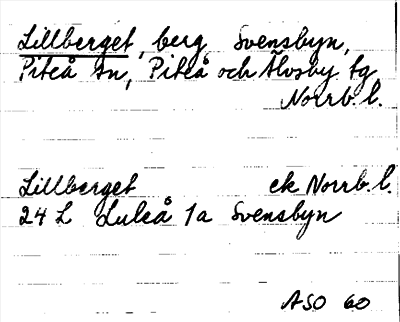 Lillberget, berg, Svensbyn,
Piteå sn, Piteå och Älvsby tg
Norrb. l.
Lillberget ek Norrb. l.
24 L Luleå 1a Svensbyn
ASO 60